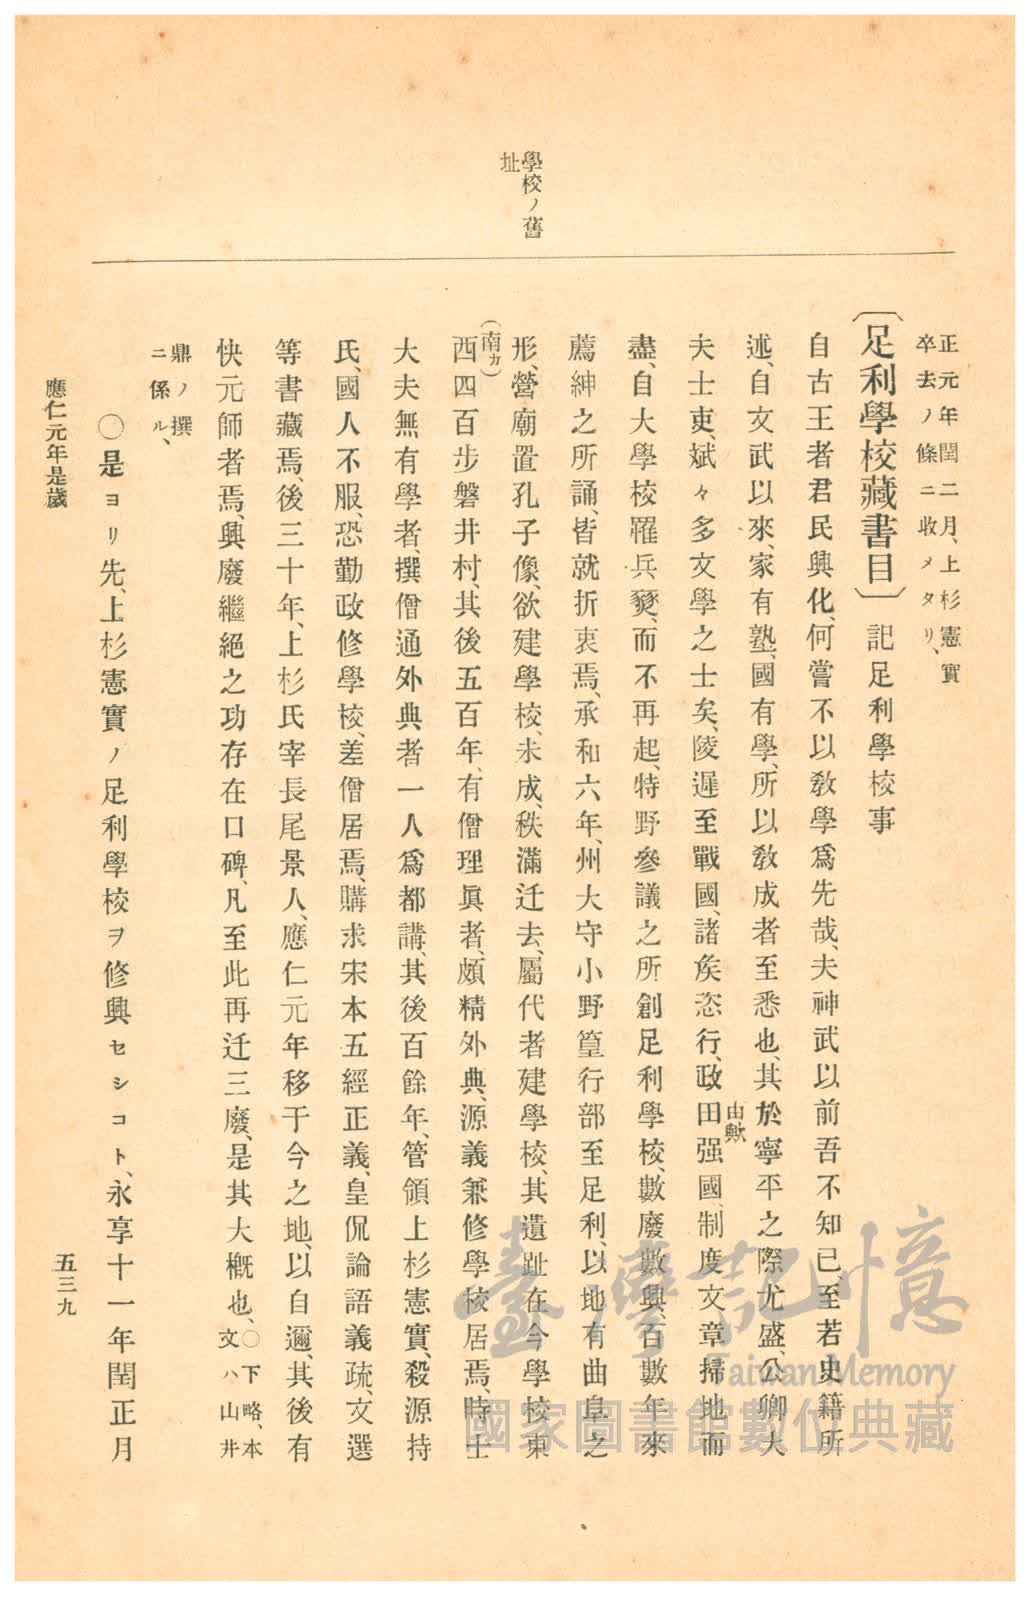 學校ノ舊
址
正元年閏二月、上杉憲實
卒去ノ條ニ收メタリ、
〔足利學校藏書目〕記足利學校事
自古王者君民興化、何嘗不以敎學爲先哉、夫神武以前吾不知已至若史籍所
述、自文武以來、家有塾、國有學、所以敎成者至悉也、其於寧平之際尤盛、公卿大
夫士吏、斌々多文學之士矣、陵遲至戰國、諸矦恣行、政田强國、制度文章掃地而
由歟
盡、自大學校罹兵燹、而不再起、特野參議之所創足利學校、數廢數興、百數年來
薦紳之所誦、皆就折衷焉、承和六年、州大守小野篁行部至足利、以地有曲阜之
形、營廟置孔子像、欲建學校、未成、秩滿迁去、屬代者建學校、其遺趾在今學校東
(南カ)
西四百步磐井村、其後五百年、有僧理眞者、頗精外典、源義兼修學校居焉、時士
大夫無有學者、撰僧通外典者一人爲都講、其後百餘年、管領上杉憲實、殺源持
氏、國人不服、恐勤政修學校、差僧居焉、購求宋本五經正義、皇侃論語義疏、文選
等書藏焉、後三十年、上杉氏宰長尾景人、應仁元年移于今之地、以自邇、其後有
快元師者焉、興廢繼絕之功存在口碑、凡至此再迁三廢、是其大槪也、〇下略、本
文ハ山井
鼎ノ撰
ニ係ル、
〇是ヨリ先、上杉憲實ノ足利學校ヲ修興セシコト、永享十一年閏正月
應仁元年是歲
五三九
臺灣記憶
Taiwan Memory
國家圖書館數位典藏